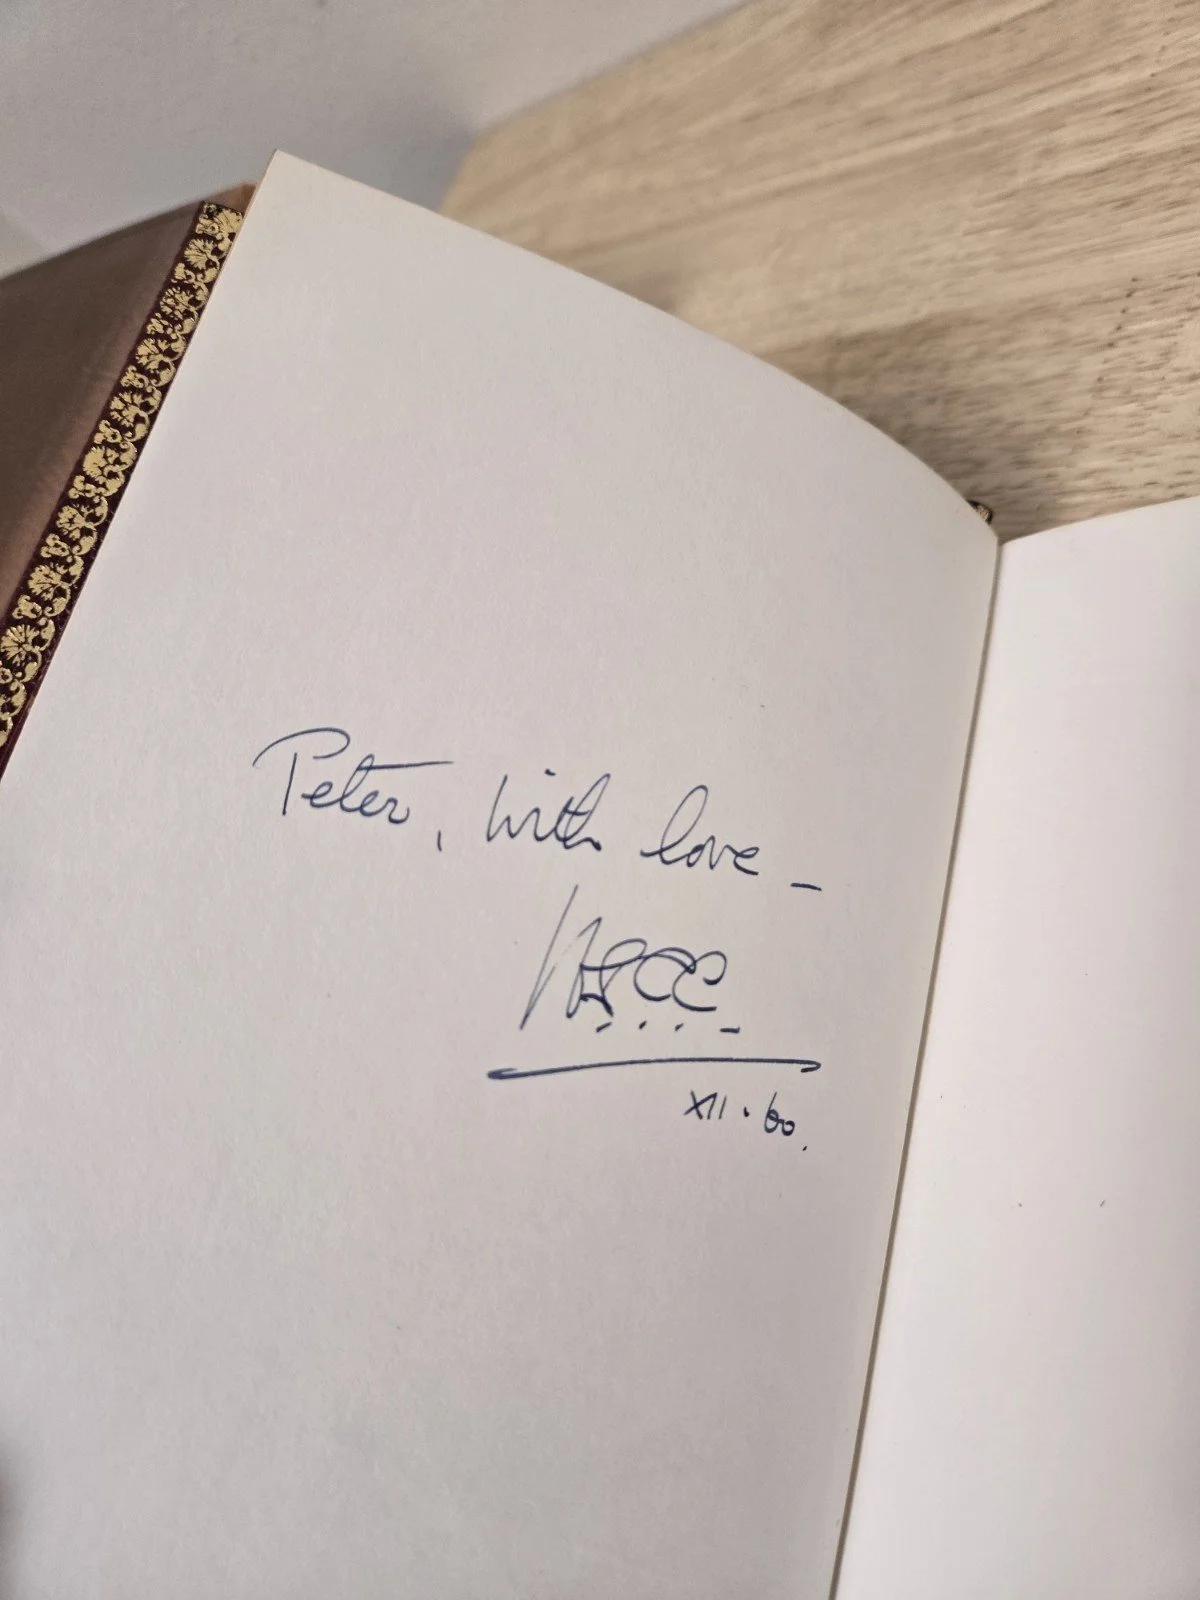 Peter, with love –
XII • 60.